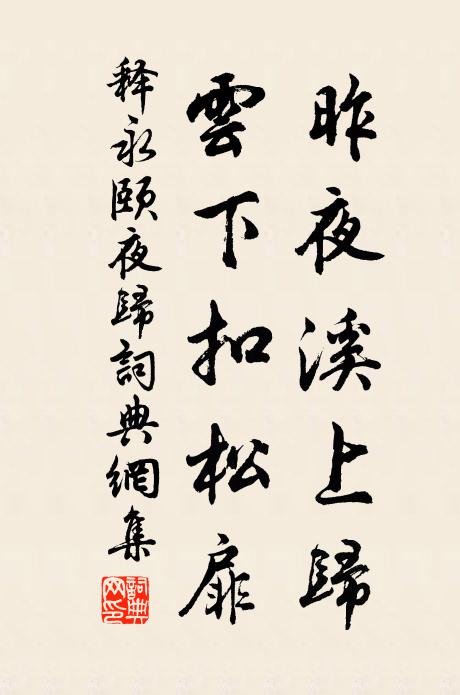 昨夜溪上歸
雲下扣松扉
释永頤夜歸詞典網集
詞典網印